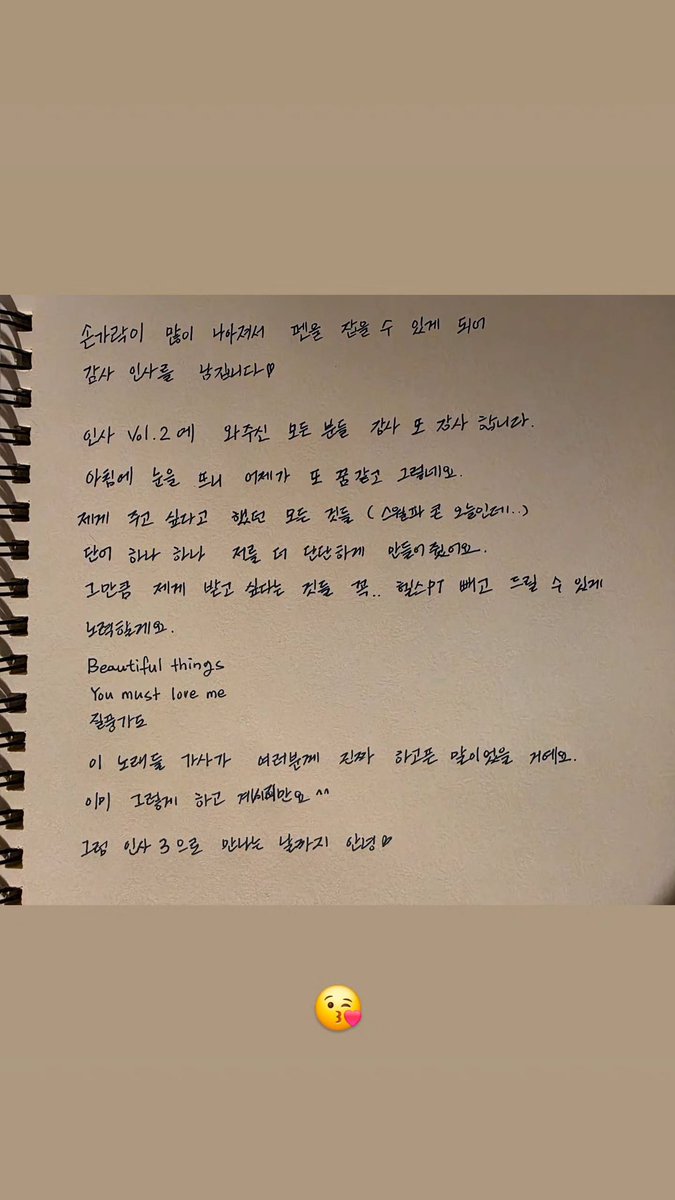 손가락이 많이 나아져서 펜을 잡을 수 있게 되어
감사 인사를 남깁니다♡
인사 Vol.2에 와주신 모든 분들 감사 또 감사 합니다.
아침에 눈을 뜨니 어제가 또 꿈같고 그렇네요.
제게 주고 싶다고 했던 모든 것들 (스월파 콘 오늘인데..)
단어 하나 하나 저를 더 단단하게 만들어줬어요.
그만큼 제게 받고 싶다는 것들 꼭.. 헬스PT 빼고 드릴 수 있게
노력할게요.
Beautiful things
You must love me
질풍가도
이 노래들 가사가 여러분께 진짜 하고픈 말이었을 거예요.
이미 그렇게 하고 계시지만요^^
그럼 인사 3으로 만나는 날까지 안녕♡